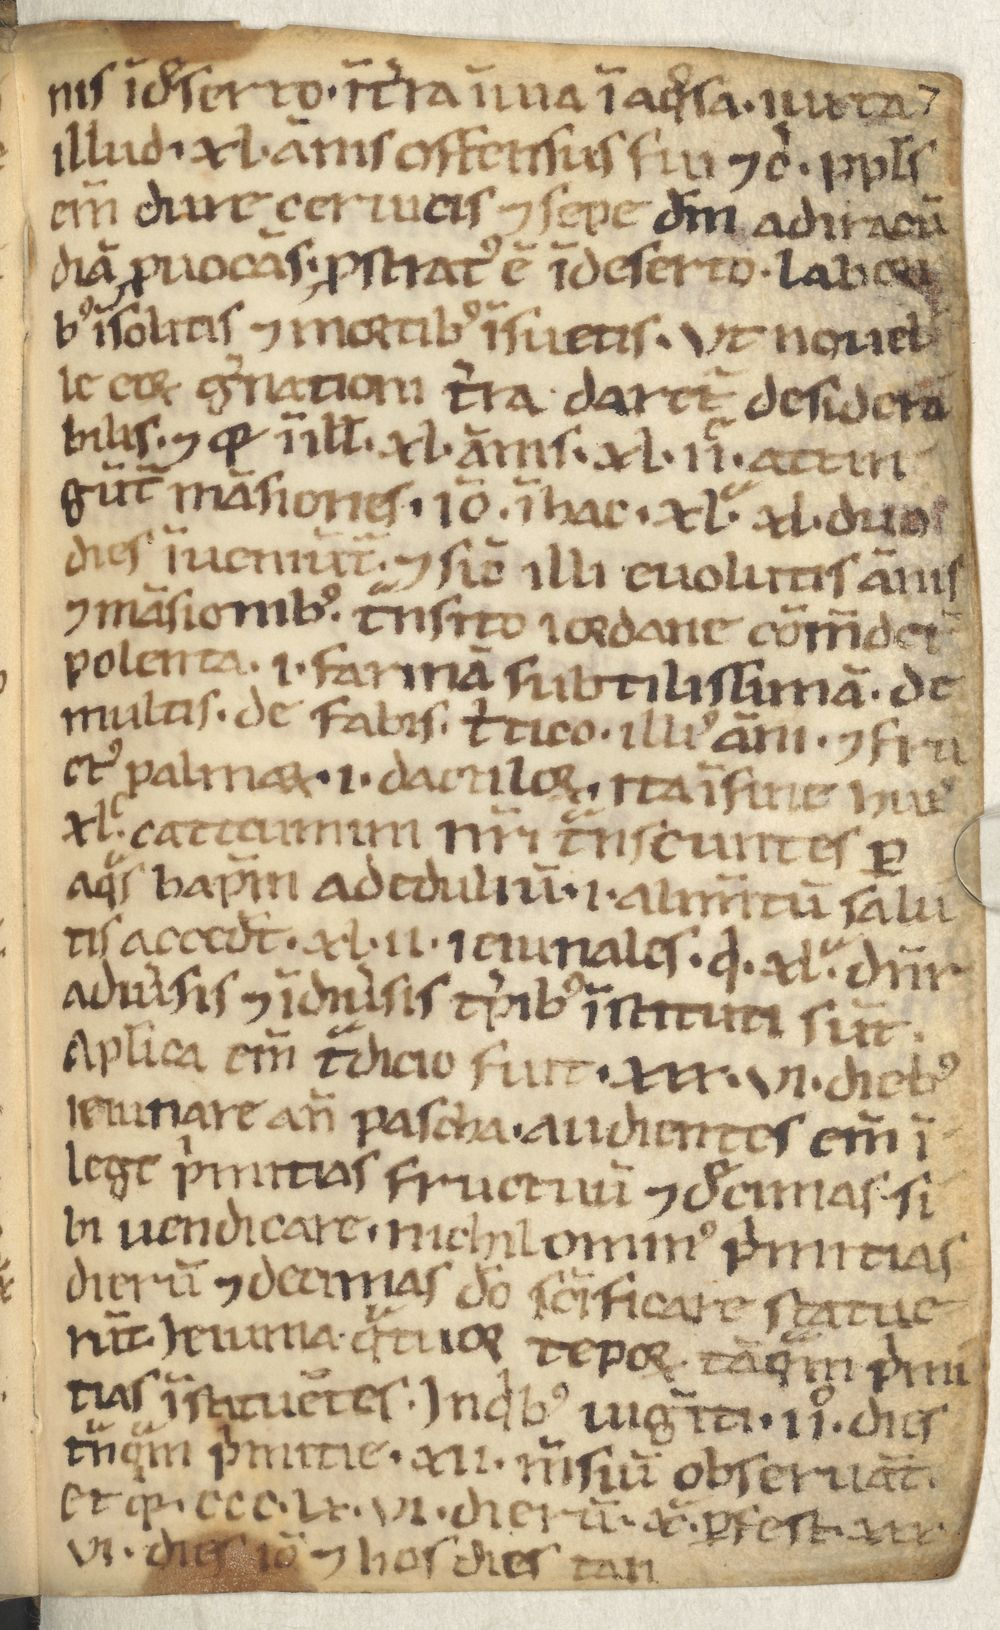 nis ī dͦserto · ī t̉ra īuia ī aq̊sa · iuxta 7
illud · xl · ānis offensus fui ⁊ c̉ · ppl̄s
em̄ dure ceruicis ⁊ sepe dm̄ ad iracū
diā ꝓuocās · ꝓstratꝰ ē ī deserto · labori
bꝰ īsolitis ⁊ mortibꝰ īsuetis · Vt nouel
le eoꝝ gn̄ationi t̉ra daret̄ desidera
bilis · ⁊ qꝛ ī ill̄ · xl · ānis · xl · ii · attin
gūt māsiones · iō · ī hac · xl · xl · duo
dies īueniūt̄ · ⁊ sic̄ illi euolutis ānis
⁊ māsionibꝰ · tn̄sito iordane cōmͫder̄
polenta · i · farinā subtilissimā · de
multis · de fabis · t̉tico · illiꝰ āni · ⁊ fru
ctꝰ palmaꝝ · i · dactiloꝝ · ita ī fine huiꝰ
xl · catecumini nr̄i tn̄seuntes ꝑ
aq̄s bapm̄ ad eduliū · i · alimtū salu
tis accedt̄ · xl · ii · ieiunales · q̇ · xl · dn̄r
a diu̓sis ⁊ ī diu̓sis tp̄ibꝰ īstituti sūt ·
Aplica em̄ t̄dicio fuit · xxx · vi · diebꝰ
ieiunare an̄ pascha · audientes em̄ ī
lege p̉mitias fructuū ⁊ dͦcimas si
bi uendicare · nichilominꝰ p̉mitias
dierū ⁊ decimas dō sc̄ificare statue
rūt · Jeiunia q̄tuor tepoꝝ tāq̄m p̉mi
tias īstituētes · In q̉bꝰ iug̉iti · iiͦ · dies
tn̄q̄m p̉mitie · xii · m̄siū obseruāt ·
Et qꝛ · ccc · lx · vi · dierū · x · ps est · xxx
vi · dies iō ⁊ hos dies tan